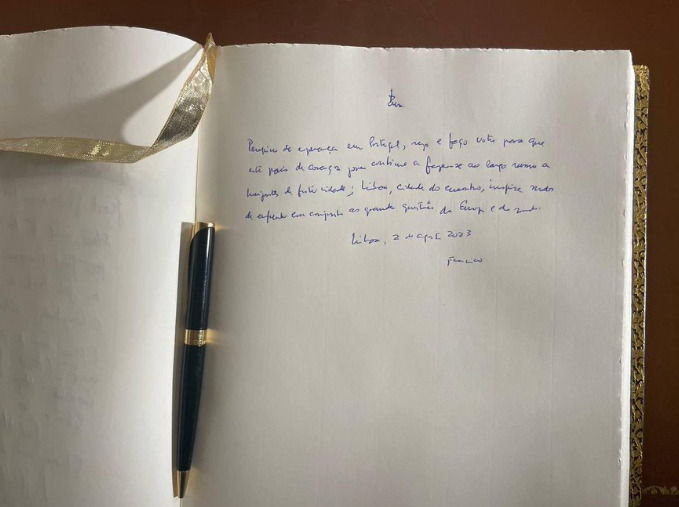 Peregrino de esperança em Portugal, rezo e faço votos para que
este país de coração jovem continue a fazer-se ao largo rumo a
horizontes de fraternidade; Lisboa, cidade do encontro, inspire modos
de enfrentar em conjunto as grandes questões da Europa e do mundo.
Lisboa, 2 de agosto 2023
Franciscus